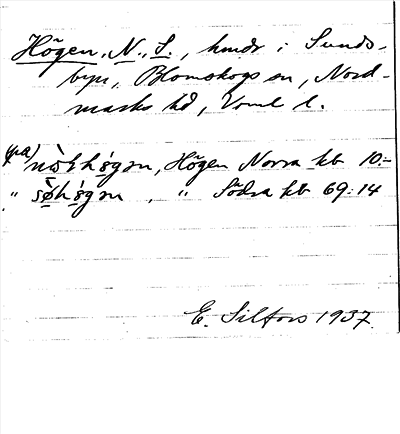 Högen, N., S., hmdr i Sunds-
byn, Blomskogs sn, Nord-
marks hd, Vrml l.
på) nòṣthø̀gɔn, Högen Norra kb 10:-
" sø̀hø̀gɔn, " Södra kb 69:14
E. Silfors 1937.